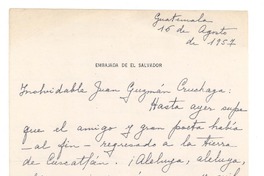 Guatemala
16 de Agosto
de 1957
EMBAJADA DE EL SALVADOR
Inolvidable Juan Guzmán Cruchaga:
Hasta ayer supe
que el amigo y gran poeta había
—al fin— regresado a la tierra
de Cuscatlán. ¡Aleluya, aleluya,